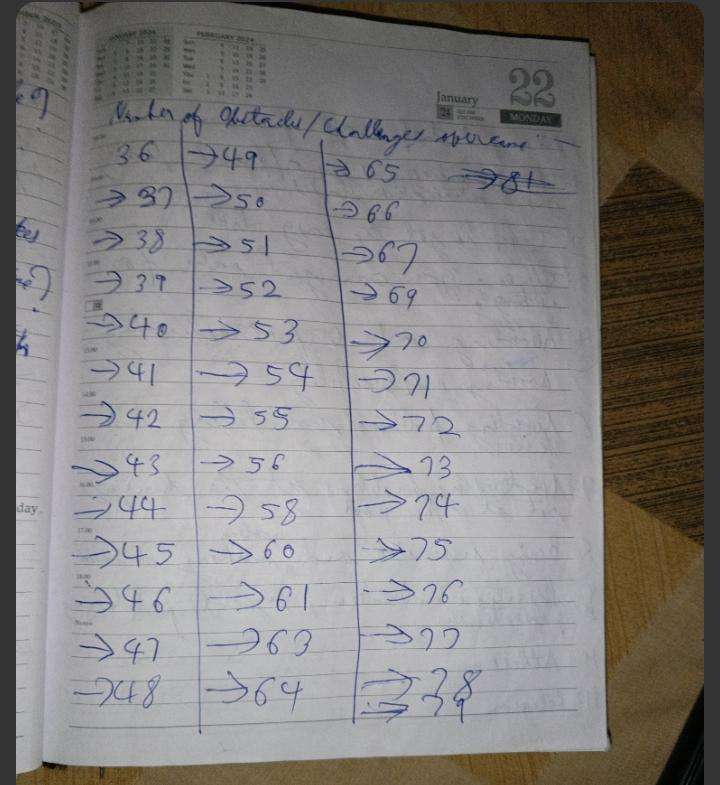 JANUARY 2024 FEBRUARY 2024
January 22
MONDAY
Number of Obstacles/Challenges overcome:-
36 →49 →65 →81
→37 →50 →66
→38 →51 →67
→39 →52 →69
→40 →53 →70
→41 →54 →71
→42 →55 →72
→43 →56 →73
→44 →58 →74
→45 →60 →75
→46 →61 →76
→47 →63 →77
→48 →64 →78
→79
day
Notes